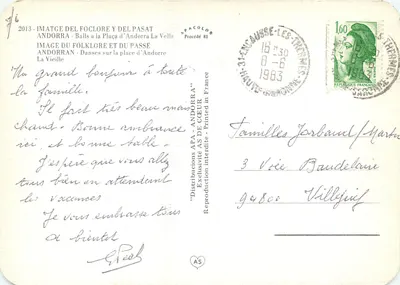 7/6
2013 - IMATGE DEL FOCLORE Y DEL PASAT
ANDORRA - Balls a la Plaça d'Andorra La Vella
IMAGE DU FOLKLORE ET DU PASSÉ
ANDORRAN - Danses sur la place d'Andorre
La Vieille
SPACOLOR
Un grand bonjour à toute
la famille.
Il fait très beau mais
chaud. Bonne ambiance
ici, et bonne table.
J'espère que vous allez
tous bien en attendant
les vacances
Je vous embrasse tous
à bientôt
"Distribucions APA - ANDORRA"
Exclusivité AS DE CŒUR
Reproduction interdite - Printed in France
AS
31-ENCAUSSE-LES-THERMES
16 H 30
8-6
1983
HAUTE-GARONNE
1,60
Familles
3 Voie Baudelaire
94800 Villejuif